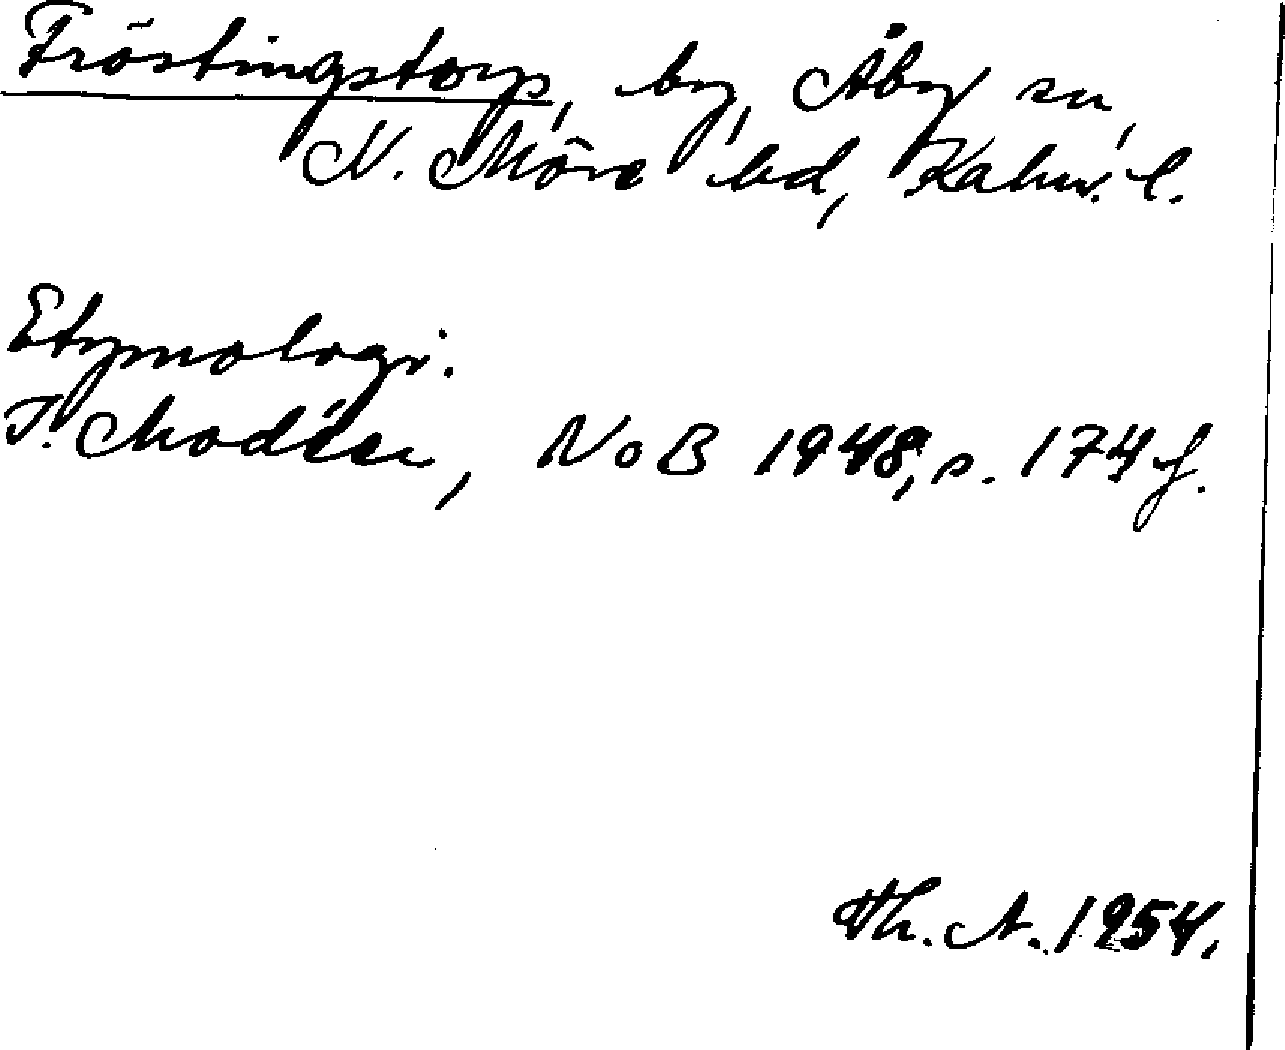 Fröstingstorp, by, Åby sn,
N. Möre hd, Kalm. l.
Etymologi.
I. Modéer, NoB 1948, s. 174 f.
Th. A. 1954.